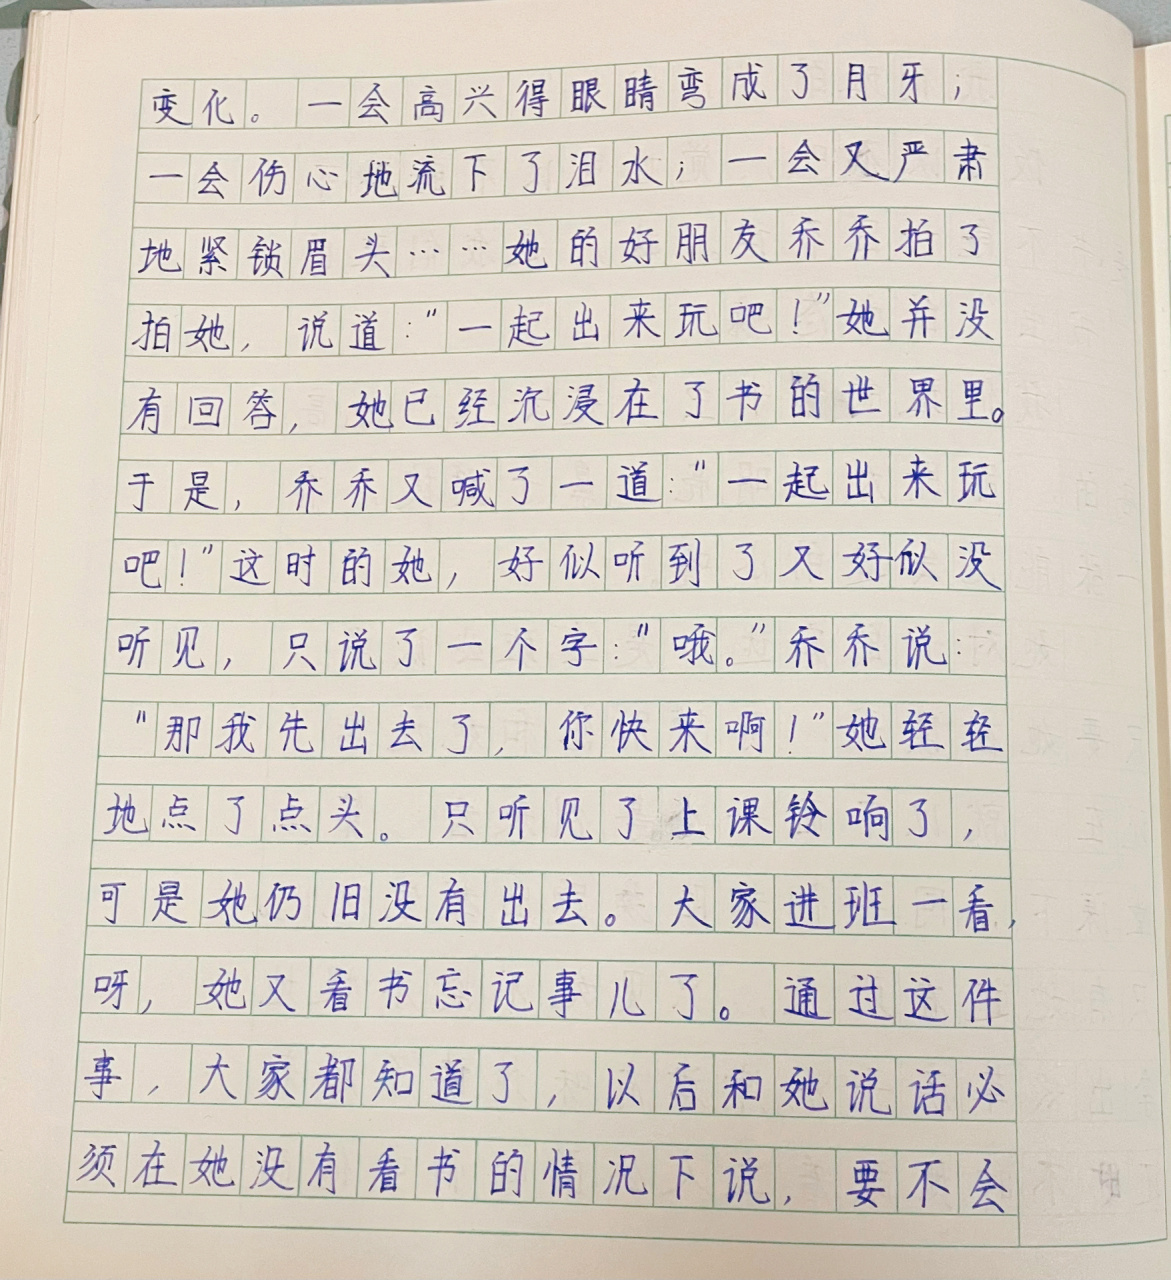 变化。一会高兴得眼睛弯成了月牙；
一会伤心地流下了泪水；一会又严肃
地紧锁眉头……她的好朋友乔乔拍了
拍她，说道：“一起出来玩吧！”她并没
有回答，她已经沉浸在了书的世界里。
于是，乔乔又喊了一道：“一起出来玩
吧！”这时的她，好似听到了又好似没
听见，只说了一个字：“哦。”乔乔说：
“那我先出去了，你快来啊！”她轻轻
地点了点头。只听见了上课铃响了，
可是她仍旧没有出去。大家进班一看，
呀，她又看书忘记事儿了。通过这件
事，大家都知道了，以后和她说话必
须在她没有看书的情况下说，要不会